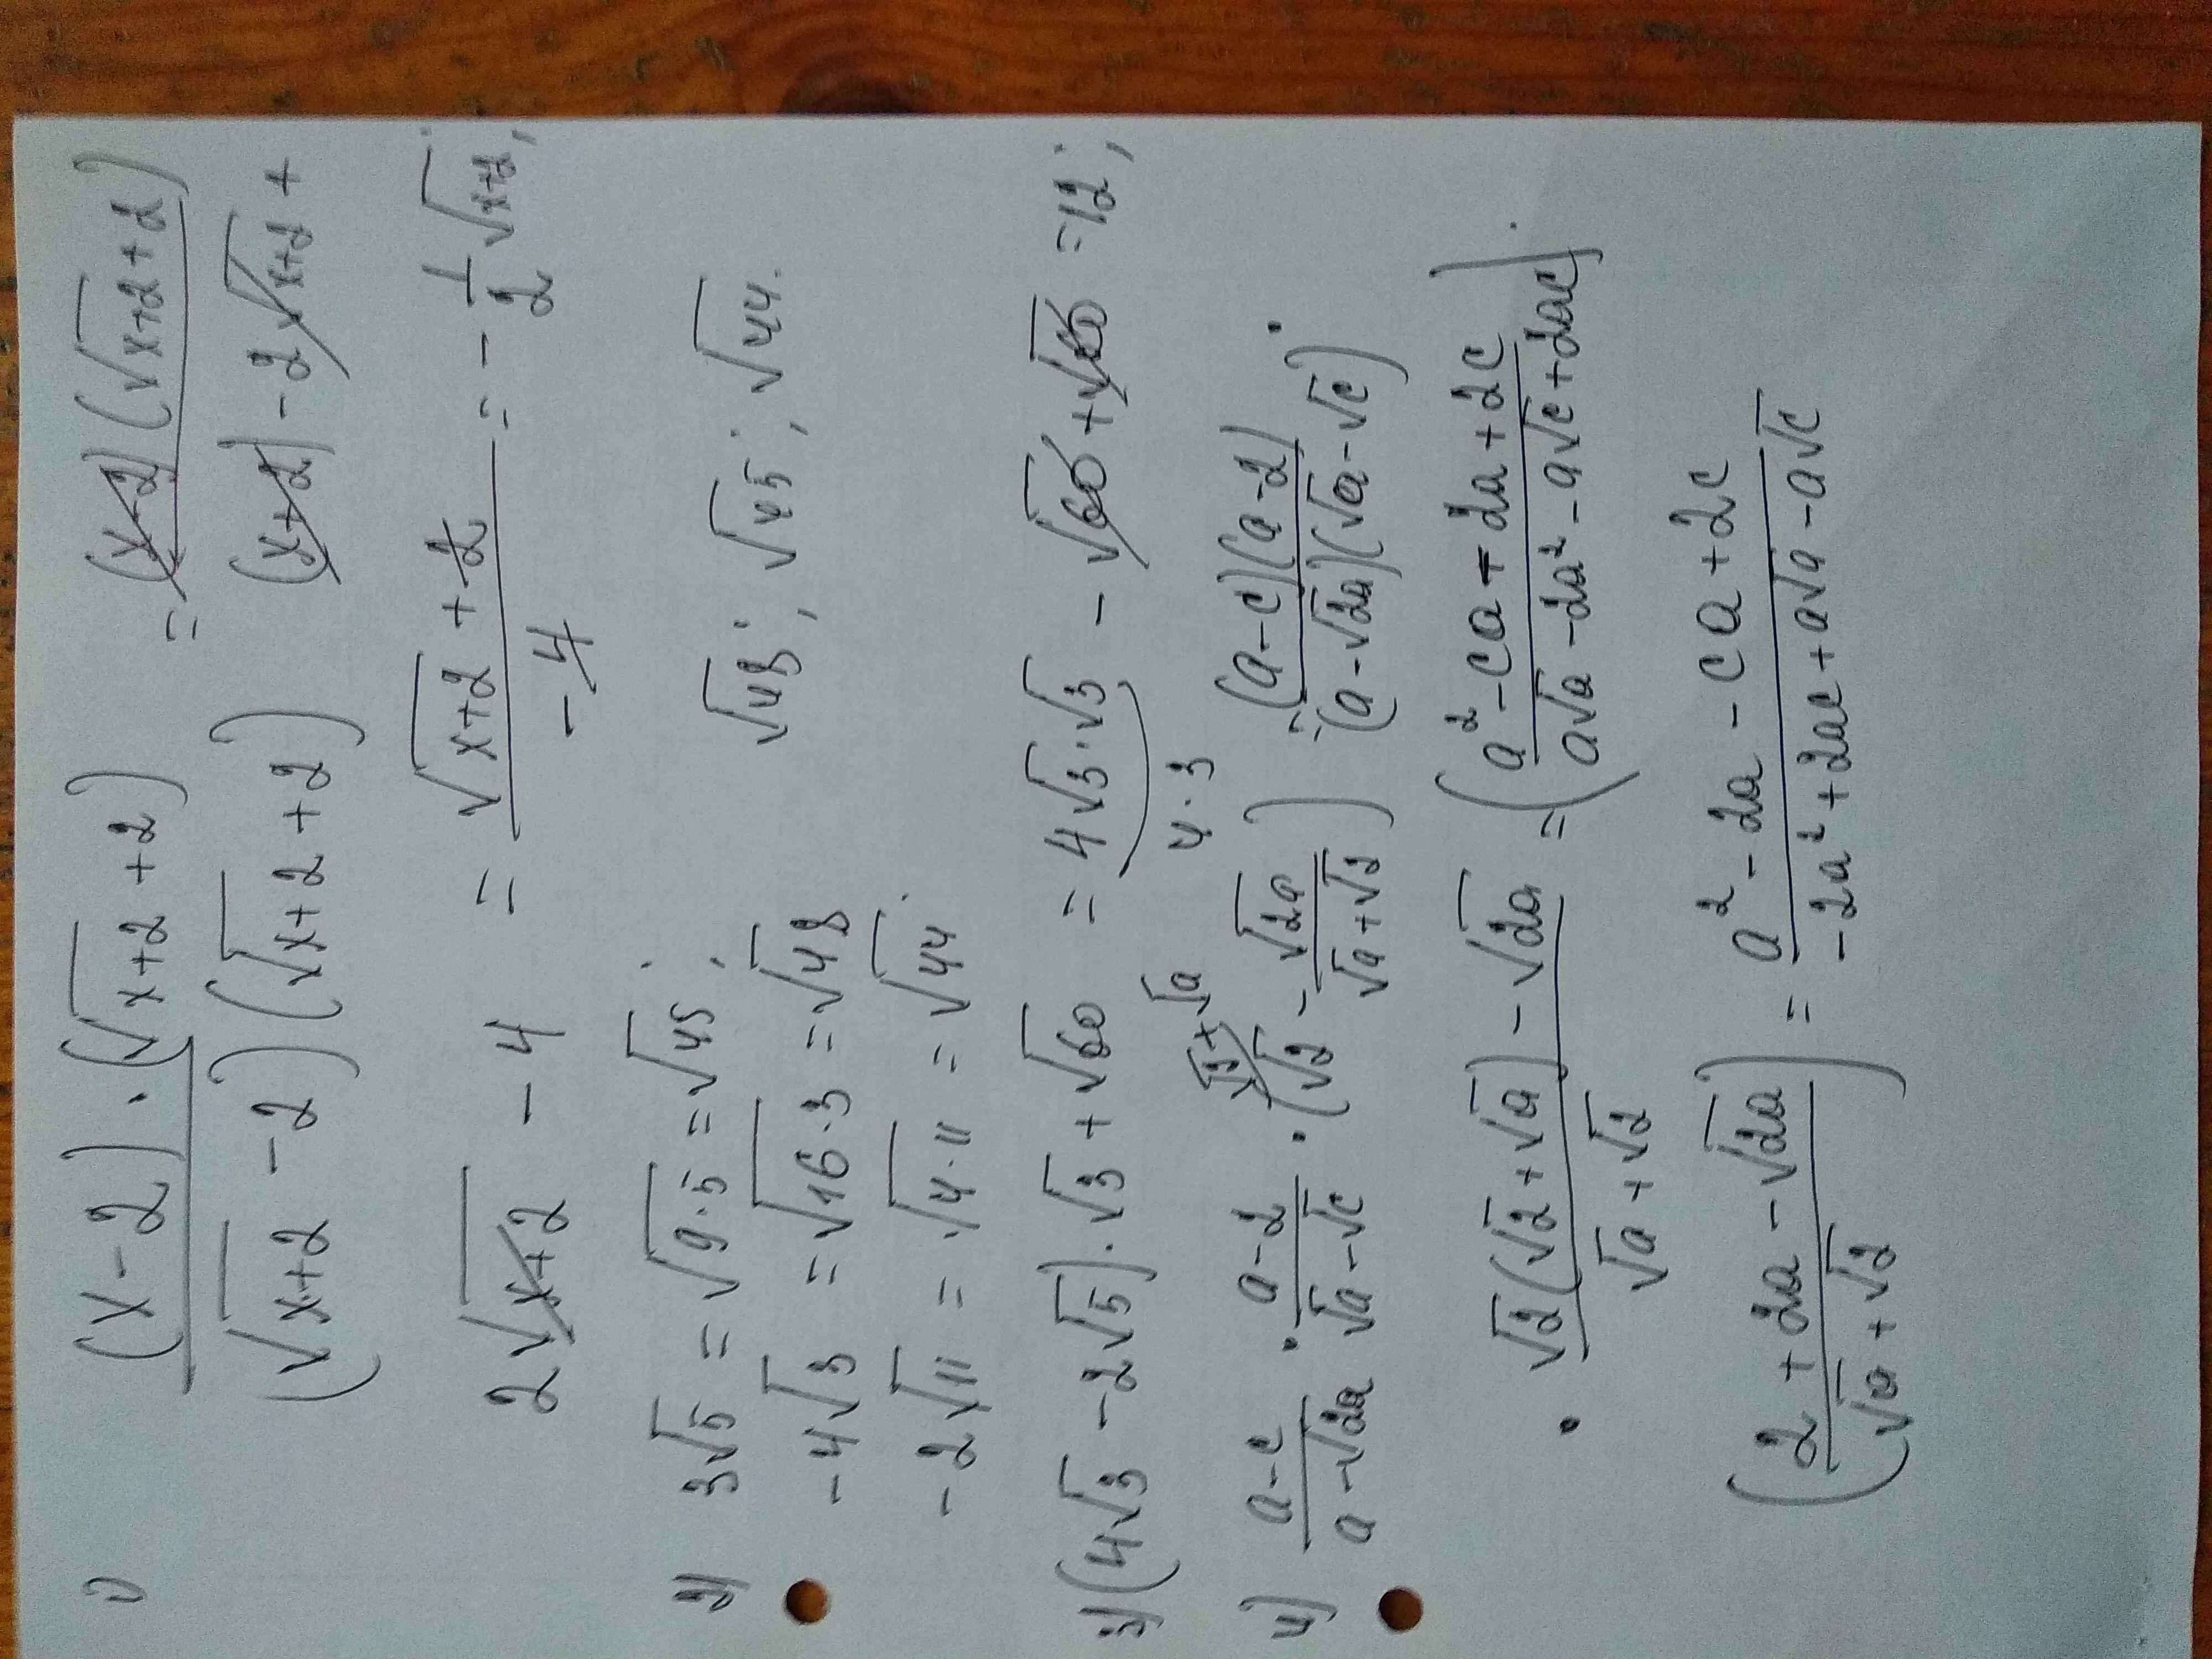 1) (x-2)·(√(x+2)+2) / (√(x+2)-2)(√(x+2)+2) = (x-2)(√(x+2)+2) / (x+2)-2√(x+2)+
2√(x+2) -4 = √(x+2)+2 / -4 = -1/2 √(x+2);
2) 3√5 = √(9·5) = √45; √48; √45; √44.
-4√3 = √(16·3) = √48
-2√11 = √(4·11) = √44.
3) (4√3 -2√5)·√3 + √60 = 4√3·√3 - √60 + √60 = 12;
4·3
4) a-c / a-√2a · a-2 / √a-√c · (√2 - √2a / √a+√2) = (a-c)(a-2) / (a-√2a)(√a-√c) ·
· √2(√2+√a) - √2a / √a+√2 = (a²-ca-2a+2c / a√a-2a²-a√c+2ac) ·
(2+2a-√2a / √a+√2) = a²-2a-ca+2c / -2a²+2ac+a√a-a√c